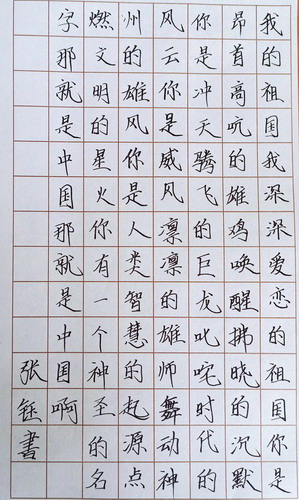 我的祖国我深深爱恋的祖国你是
昂首高吭的雄鸡唤醒拂晓的沉默
你是冲天腾飞的巨龙叱咤时代的
风云你是威风凛凛的雄师舞动神
州的雄风你是人类智慧的起源点
燃文明的星火你有一个神圣的名
字那就是中国那就是中国啊
张钰書